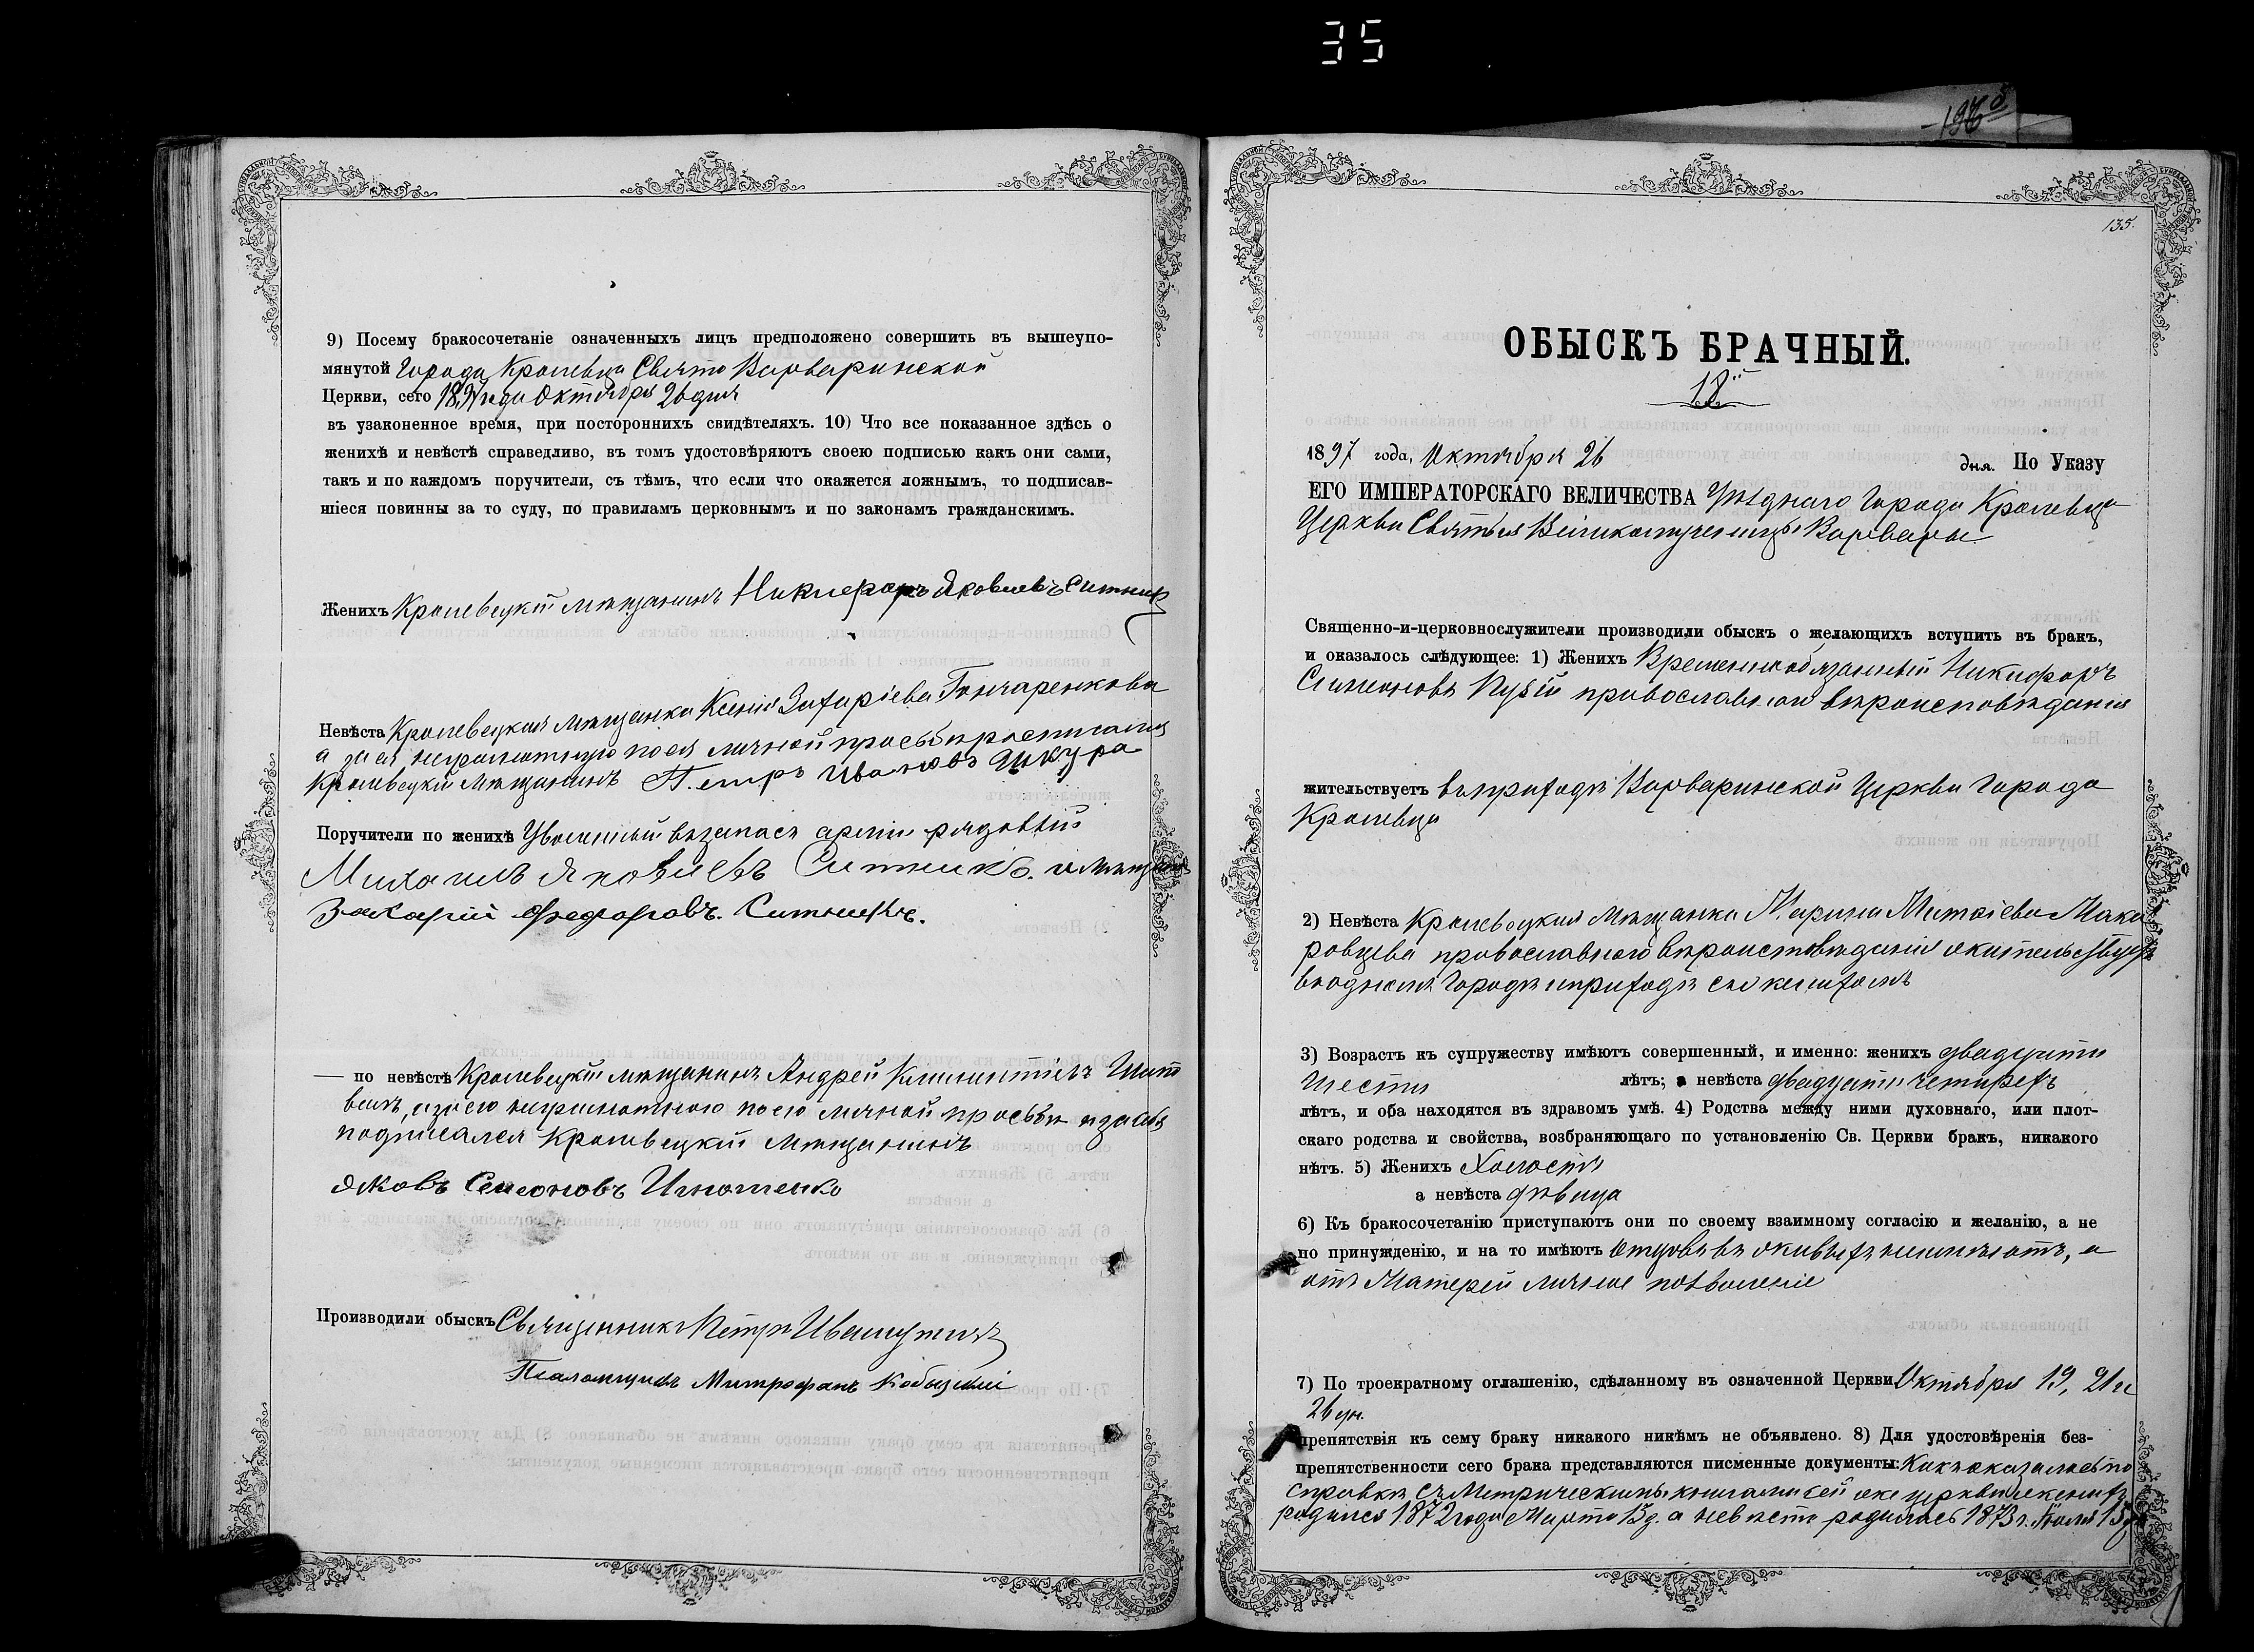 35
196
9) Посему бракосочетаніе означенныхъ лицъ предположено совершить въ вышеупо-
мянутой Города Кролевца Свято Варваринской
Церкви, сего 1897 года Октября 26 дня
въ узаконенное время, при постороннихъ свидѣтеляхъ. 10) Что все показанное здѣсь о
женихѣ и невѣстѣ справедливо, въ томъ удостовѣряютъ своею подписью какъ они сами,
такъ и по каждомъ поручители, съ тѣмъ, что если что окажется ложнымъ, то подписав-
шіеся повинны за то суду, по правиламъ церковнымъ и по законамъ гражданскимъ.
Женихъ Кролевецкій мѣщанинъ Никифоръ Яковлевъ Ситникъ
Невѣста Кролевецкая мѣщанка Ксенія Захаріева Гончаренкова
а за ея неграмотную по ея личной просьбѣ росписался
Кролевецкій мѣщанинъ Петръ Ивановъ Шкура
Поручители по женихѣ Уволенный въ запасъ арміи рядовый
Михаилъ Яковлевъ Ситникъ. и мѣщанинъ
Захарій Федоровъ. Ситникъ.
— по невѣстѣ Кролевецкій мѣщанинъ Андрей
неграмотного по его личной просьбѣ и за себя
подписался Кролевецкій мѣщанинъ
Яковъ Семеоновъ Игнатенко
Производили обыскъ Священникъ Петръ
Псаломщикъ Митрофанъ
135.
ОБЫСКЪ БРАЧНЫЙ.
18й
1897 года, Октября 26 дня. По Указу
ЕГО ИМПЕРАТОРСКАГО ВЕЛИЧЕСТВА Уѣзднаго Города Кролевца
Церкви Святыя Великомученицы Варвары
Священно-и-церковнослужители производили обыскъ о желающихъ вступить въ бракъ,
и оказалось слѣдующее: 1) Женихъ Временнообязанный Никифоръ
Симеоновъ Пузій православнаго вѣроисповѣданія
жительствуетъ въ приходѣ Варваринской Церкви Города
Кролевца
2) Невѣста Кролевецкая мѣщанка Марина Матвіева Мака
ровцева православного вѣроисповѣданія жительствуетъ
въ одномъ Городѣ и приходѣ съ женихомъ
3) Возрастъ къ супружеству имѣютъ совершенный, и именно: женихъ двадцати
шести лѣтъ; а невѣста двадцати четырехъ
лѣтъ, и оба находятся въ здравомъ умѣ. 4) Родства между ними духовнаго, или плот-
скаго родства и свойства, возбраняющаго по установленію Св. Церкви бракъ, никакого
нѣтъ. 5) Женихъ Холостъ
а невѣста дѣвица
6) Къ бракосочетанію приступаютъ они по своему взаимному согласію и желанію, а не
по принужденію, и на то имѣютъ отцовъ въ живыхъ неимѣютъ, а
отъ Матерей личное позволеніе
7) По троекратному оглашенію, сдѣланному въ означенной Церкви Октября 19, 21 и
26 дн.
препятствія къ сему браку никакого никѣмъ не объявлено. 8) Для удостовѣренія без-
препятственности сего брака представляются писменные документы: Какъ оказалось по
справкѣ съ Метрическими книгами сей же церкви женихъ
родился 1872 года Марта 13 д. а невѣста родилась 1873 г. Іюля 15